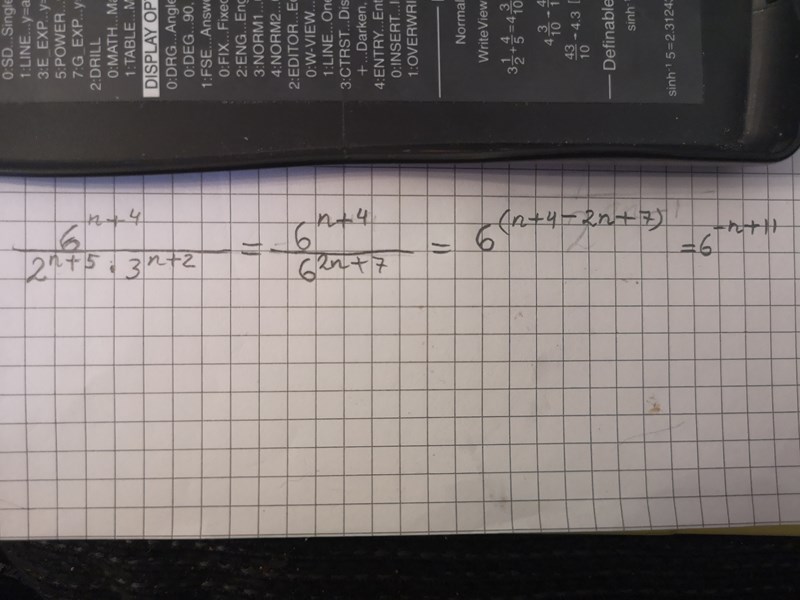 0:SD...Single
1:LINE...y=a
3:E_EXP..y
5:POWER...
7:G_EXP..y
2:DRILL
0:MATH...Ma
1:TABLE..M
DISPLAY OP
0:DRG...Angle
0:DEG...90,
1:FSE...Answ
0:FIX...Fixed
2:ENG...Eng
3:NORM1...
4:NORM2...
2:EDITOR...Ed
0:W-VIEW...
1:LINE...On
3:CTRST...Dis
+ ...Darken,
4:ENTRY...Ent
0:INSERT...I
1:OVERWRI
Normal
WriteView
3 1/2 + 4/5 = 4 3/10
4 3/10
43/10 → 4.3
Definable
sinh⁻¹
sinh⁻¹ 5 = 2.3124
6^(n+4) / (2^(n+5) · 3^(n+2)) = 6^(n+4) / 6^(2n+7) = 6^(n+4−2n+7) = 6^(−n+11)